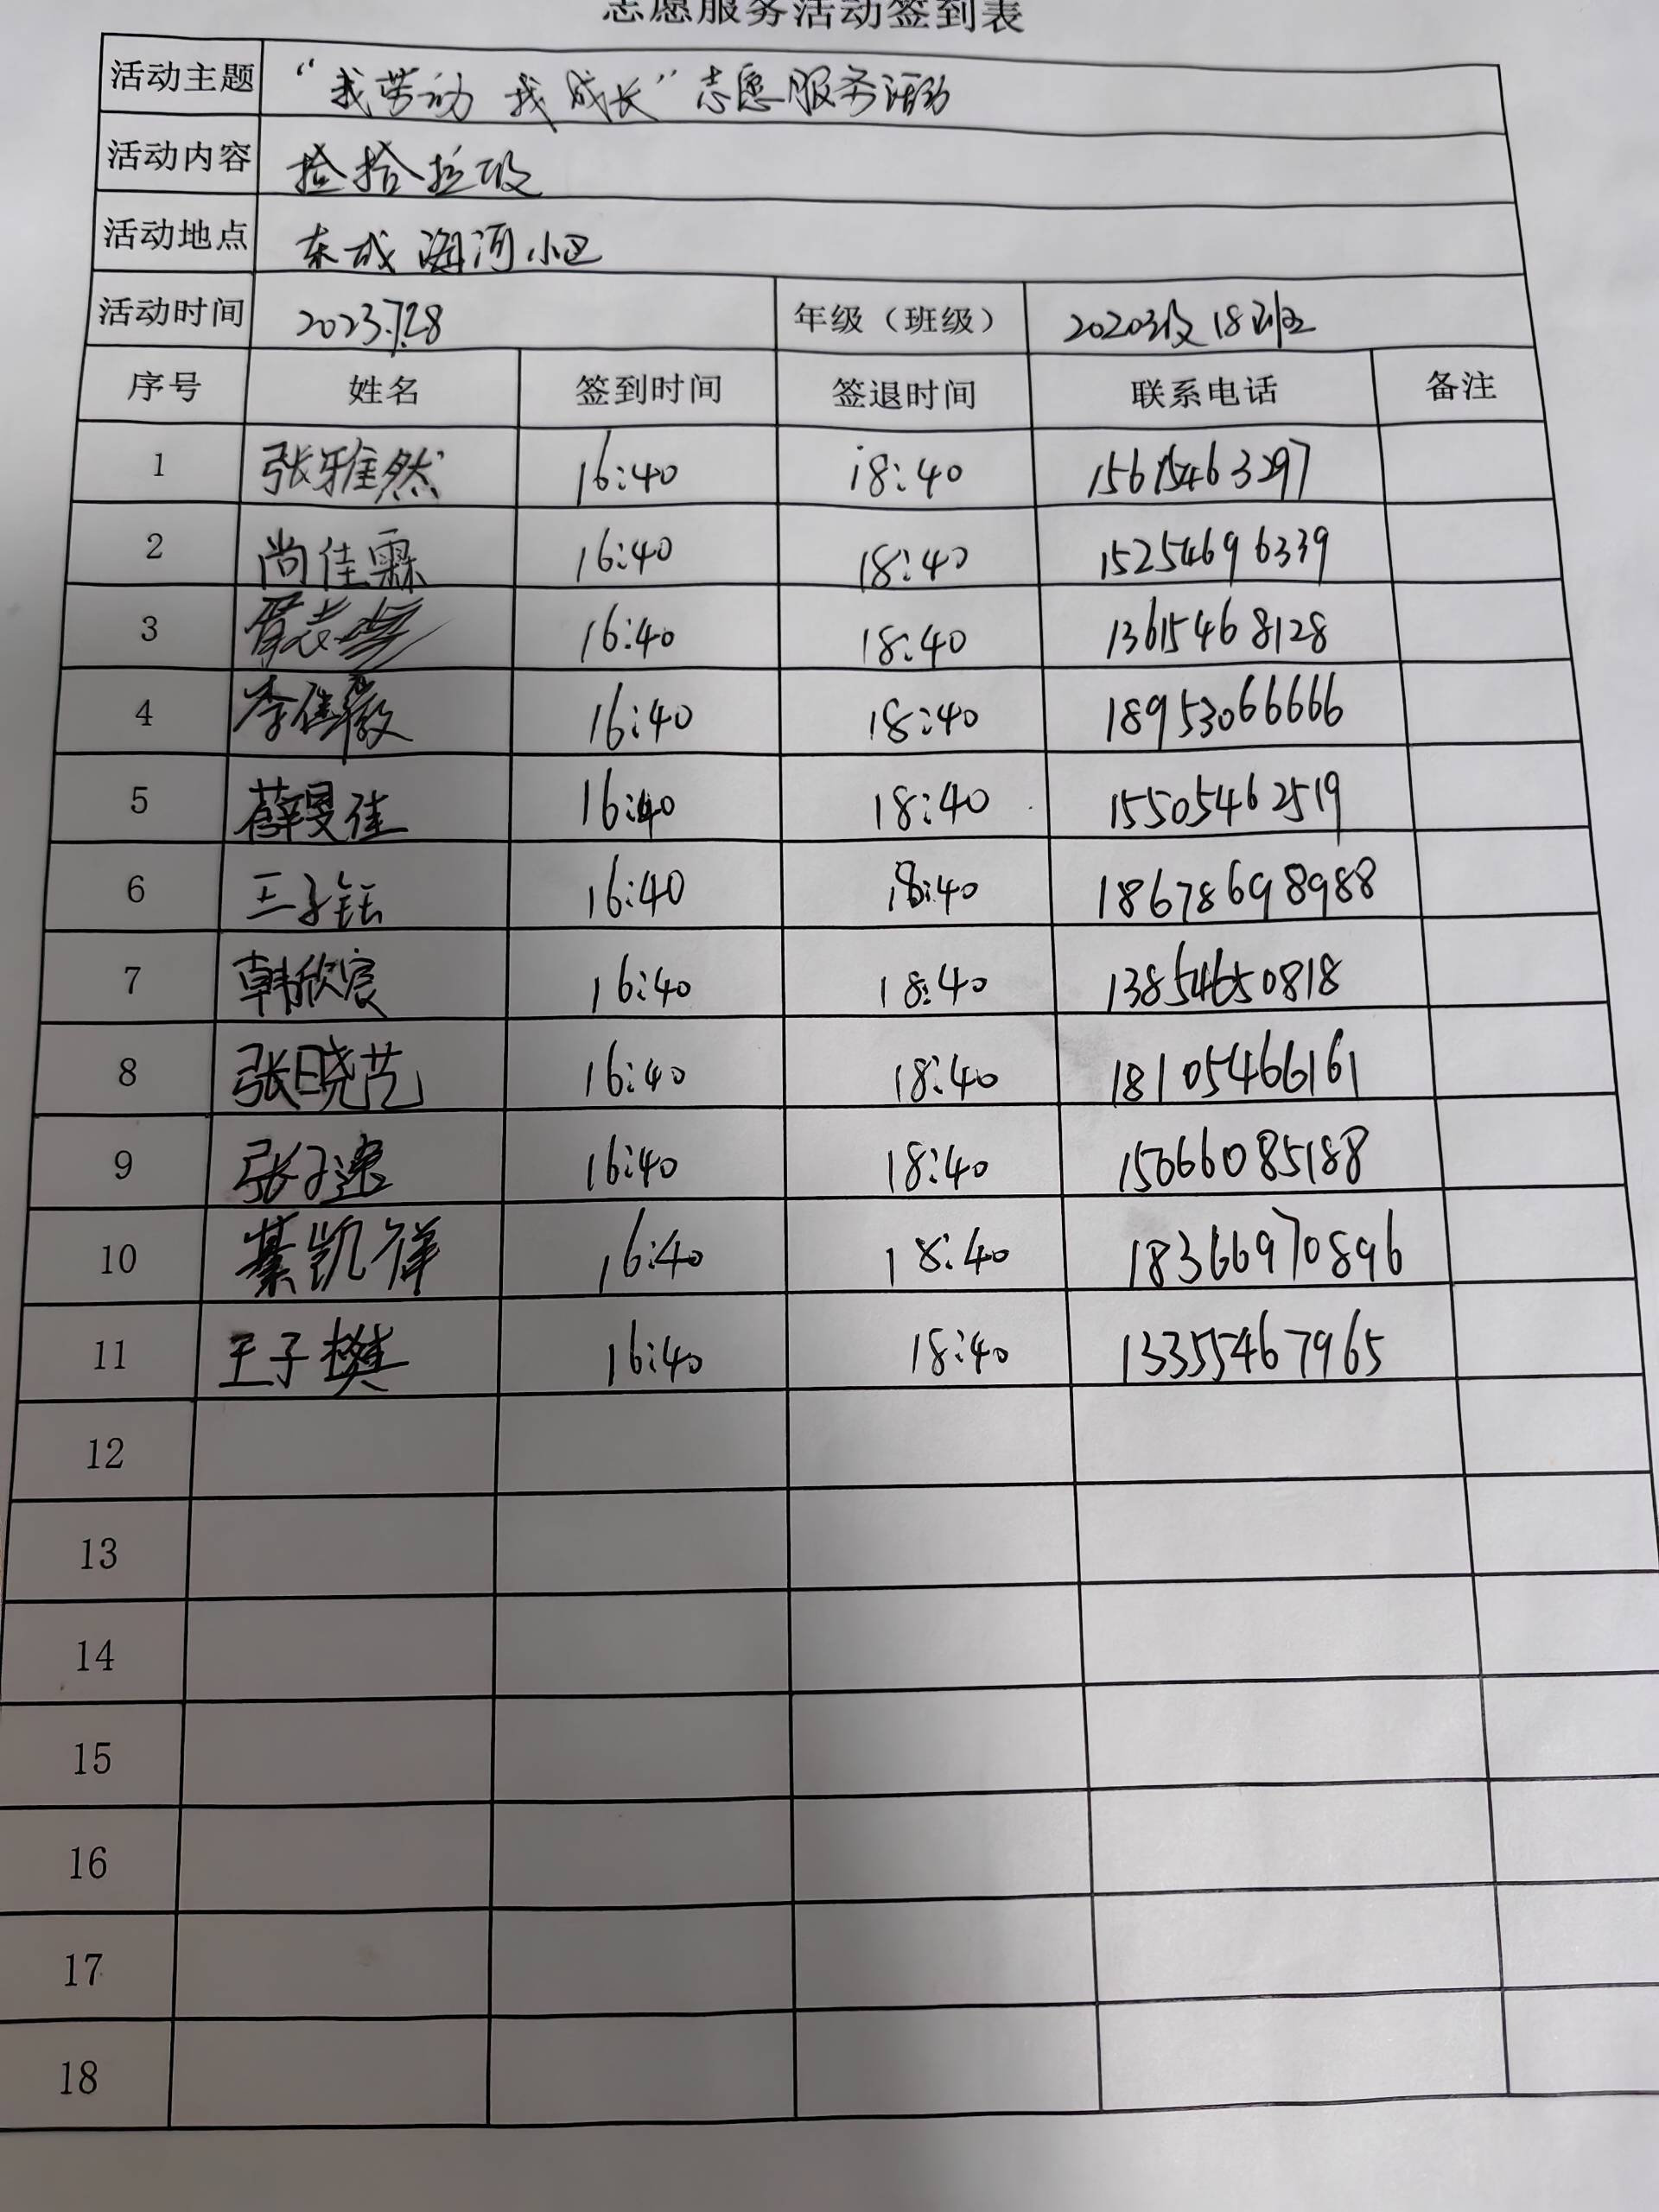 志愿服务活动签到表
活动主题 “我劳动 我成长”志愿服务活动
活动内容 捡拾垃圾
活动地点 东城海河小区
活动时间 2023.7.28 年级（班级） 2020级18班
序号 姓名 签到时间 签退时间 联系电话 备注
1 张雅然 16:40 18:40 15615463297
2 尚佳霖 16:40 18:40 15254696339
3 16:40 18:40 13615468128
4 李佳薇 16:40 18:40 18953066666
5 薛旻佳 16:40 18:40 15505462519
6 王子钰 16:40 18:40 18678698988
7 韩欣宸 16:40 18:40 13854650818
8 张晓艺 16:40 18:40 18105466161
9 张子 16:40 18:40 15066085188
10 綦凯祥 16:40 18:40 18366970896
11 王子樊 16:40 18:40 13355467965
12
13
14
15
16
17
18